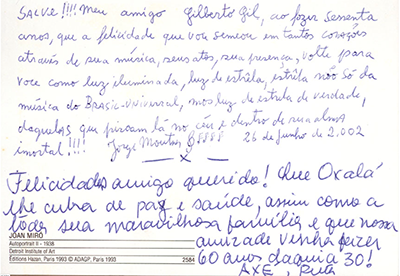 SALVE!!!! Meu amigo Gilberto Gil, ao fazer sessenta
anos, que a felicidade que vou semeou em tantos corações
através de sua música, seus atos, sua presença, volte para
você como luz iluminada, luz de estrêla, estrêla não só da
música do BRASIL-Universal, mas luz de estrela de verdade,
daquelas que piscam lá no céu e dentro de sua alma
imortal!!! Jorge 26 de Junho de 2.002
— x —
Felicidades amigo querido! Que Oxalá
lhe cubra de paz e saúde, assim como a
toda sua maravilhosa família e que nossa
amizade venha fazer
60 anos daqui a 30!
AXÉ,
JOAN MIRÓ
Autoportrait II - 1938
Detroit Institute of Art
Éditions Hazan, Paris 1993 © ADAGP, Paris 1993 2584